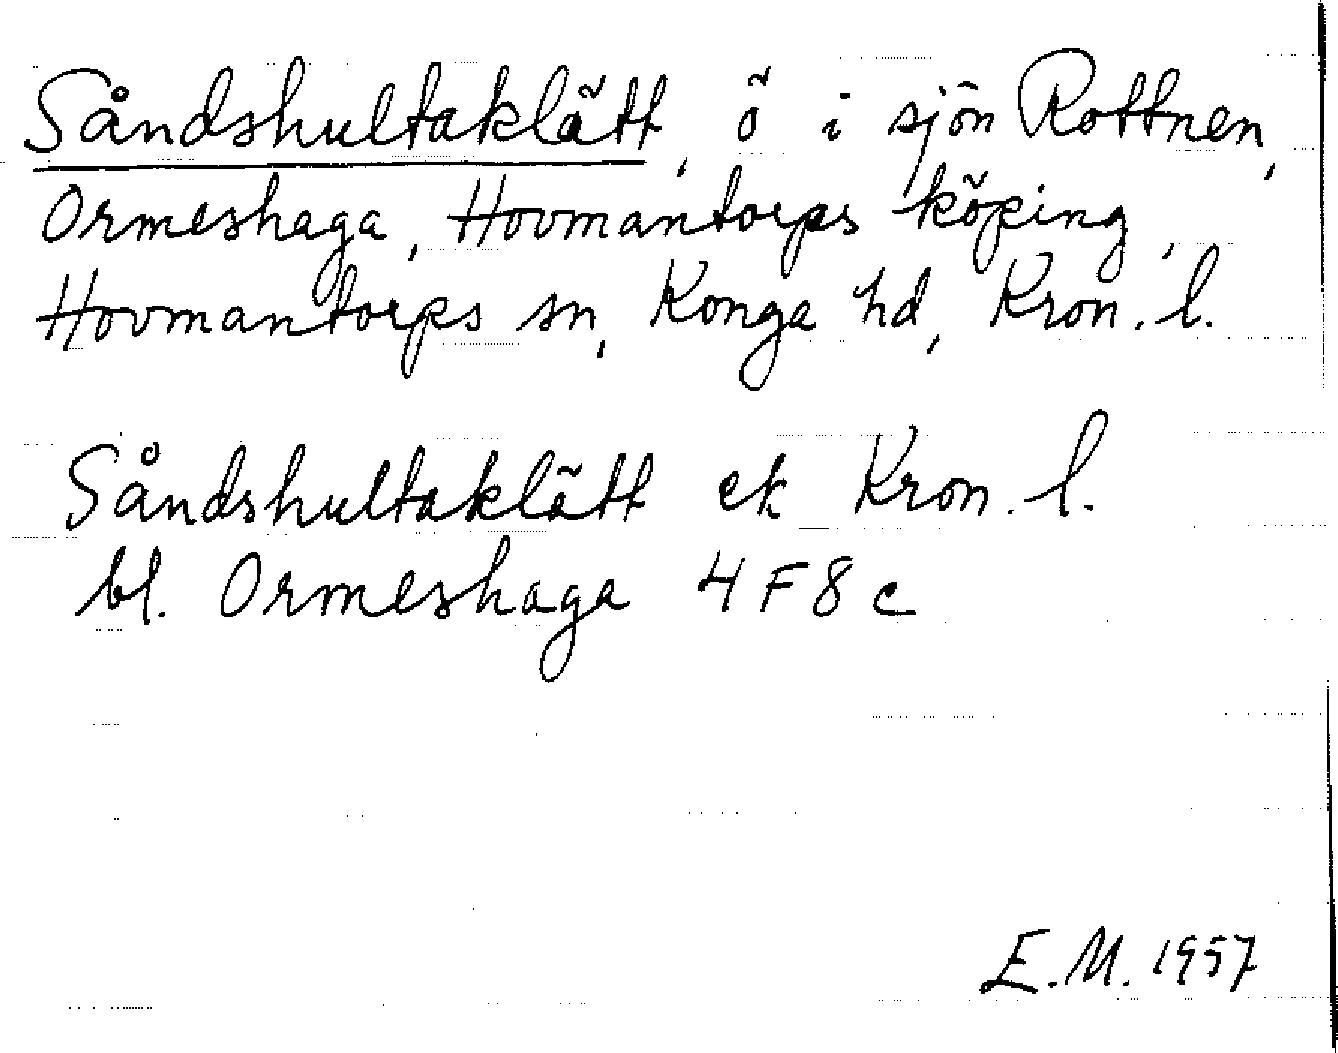 Såndshultaklätt, ö i sjön Rottnen,
Ormeshaga, Hovmantorps köping,
Hovmantorps sn, Konga hd, Kron. l.
Såndshultaklätt ek Kron. l.
bl. Ormeshaga 4 F 8 c
E. M. 1957